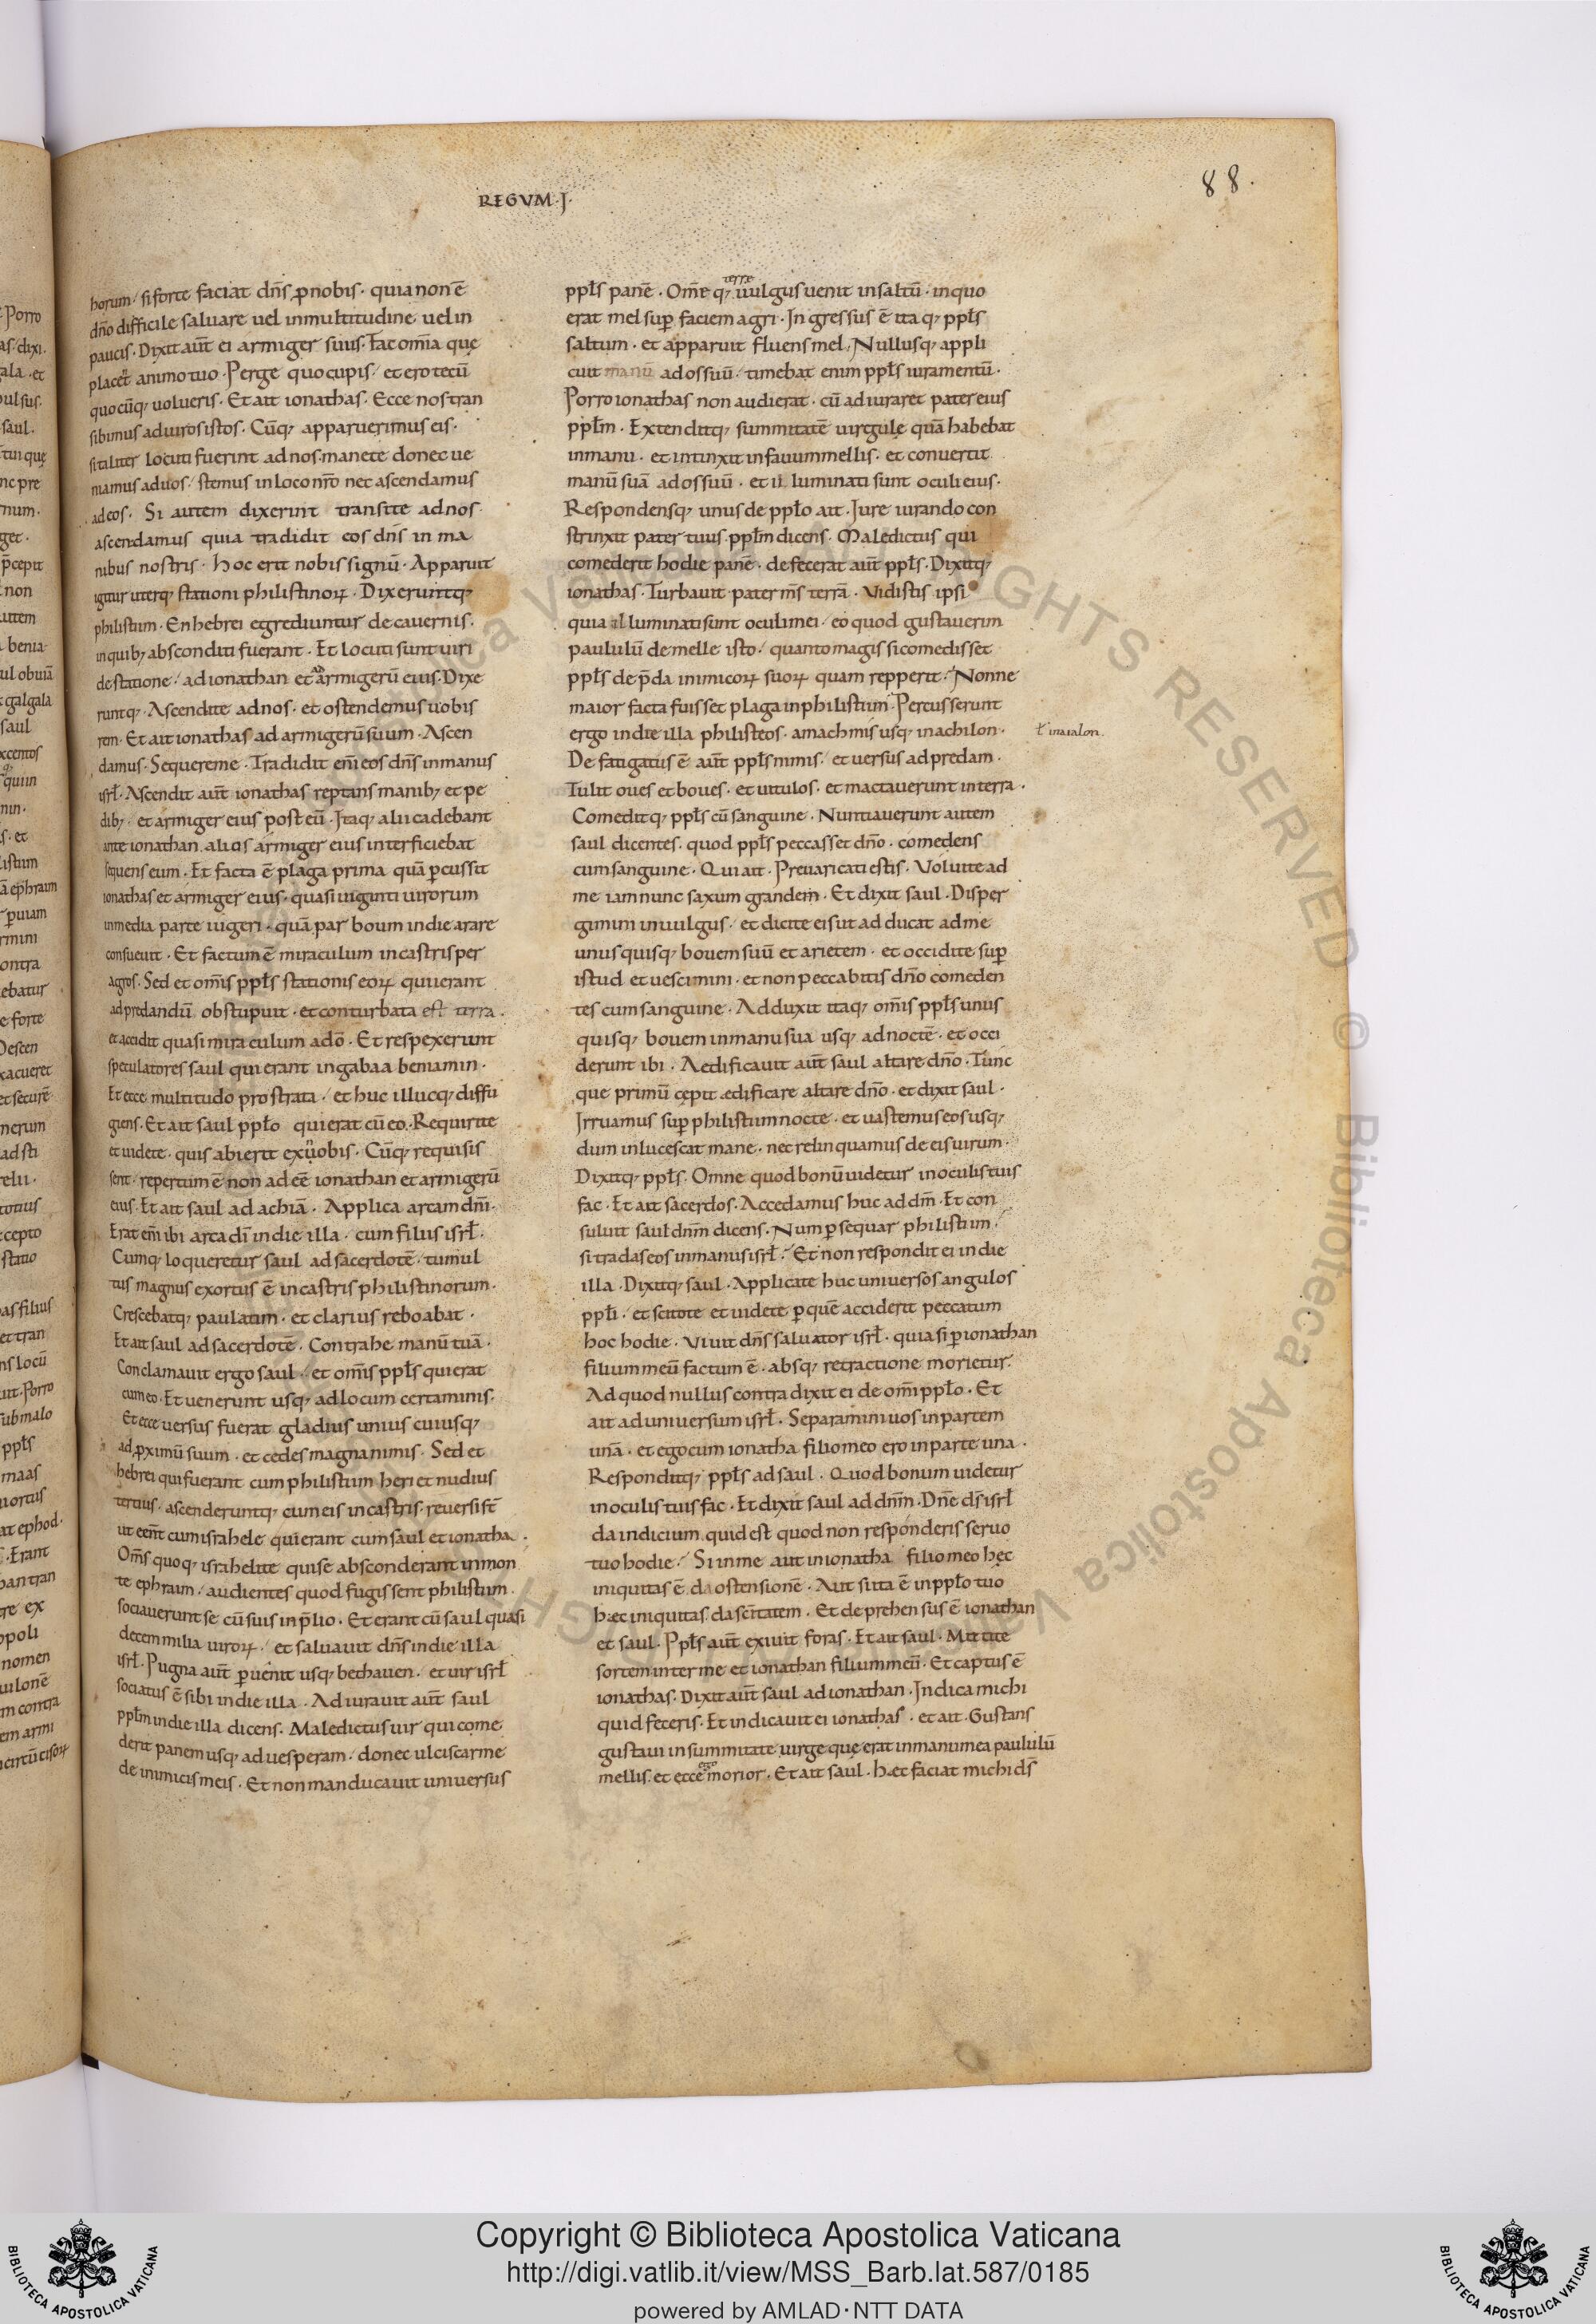 REGVM·J·
88.
horum / si forte faciat dn̅s ꝓ nobis · quia non e̅
dn̅o difficile saluare uel in multitudine uel in
paucis · Dixit aut̅ ei armiger suus · Fac om̅ia que
placet animo tuo · Perge quo cupis / et ero tecu̅
quocu̅q; uolueris · Et ait ionathas · Ecce nos tran
sibimus ad uiros istos · Cu̅q; apparuerimus eis ·
si taliter locuti fuerint ad nos manete donec ue
niamus ad uos / stemus in loco nr̅o nec ascendamus
ad eos · Si autem dixerint transite ad nos
ascendamus quia tradidit eos dn̅s in ma
nibus nostris · hoc erit nobis signu̅ · Apparuit
igitur uterq; stationi philistinoꝝ · Dixeruntq;
philistiim · En hebrei egrediuntur de cauernis ·
in quib; absconditi fuerant · Et locuti sunt uiri
de statione / ad ionathan et ad armigeru̅ eius · Dixe
runtq; · Ascendite ad nos · et ostendemus uobis
rem · Et ait ionathas ad armigeru̅ suum · Ascen
damus · Sequere me · Tradidit eni̅ eos dn̅s in manus
isrl̅ · Ascendit aut̅ ionathas reptans manib; et pe
dib; · et armiger eius post eu̅ · Itaq; alii cadebant
ante ionathan alios armiger eius interficiebat
sequens eum · Et facta e̅ plaga prima qua̅ ꝑcussit
ionathas et armiger eius · quasi uiginti uirorum
in media parte iugeri · qua̅ par boum in die arare
consueuit · Et factum e̅ miraculum in castris per
agros · Sed et om̅is ppl̅s stationis eoꝝ qui ierant
ad predandu̅ obstupuit · et conturbata est terra ·
et accidit quasi miraculum a do̅ · Et respexerunt
speculatores saul qui erant in gabaa beniamin ·
Et ecce multitudo prostrata / et huc illucq; diffu
giens · Et ait saul ppl̅o qui erat cu̅ eo · Requirite
et uidete · quis abierit ex uobis · Cu̅q; requisis
sent · repertum e̅ non ade̅e ionathan et armigeru̅
eius · Et ait saul ad achia̅ · Applica arcam dn̅i ·
Erat eni̅ ibi arca di̅ in die illa · cum filiis isrl̅ ·
Cumq; loqueretur saul ad sacerdote̅ / tumul
tus magnus exortus e̅ in castris philistinorum ·
Crescebatq; paulatim · et clarius reboabat ·
Et ait saul ad sacerdote̅ · Contrahe manu̅ tua̅ ·
Conclamauit ergo saul · et om̅is ppl̅s qui erat
cum eo · Et uenerunt usq; ad locum certaminis ·
Et ecce uersus fuerat gladius unius cuiusq;
ad ꝓximu̅ suum · et cedes magna nimis · Sed et
hebrei qui fuerant cum philistiim heri et nudius
tertius · ascenderuntq; cum eis in castris · reuersi st̅
ut ee̅nt cum israhele qui erant cum saul et ionatha ·
Om̅s quoq; israhelite qui se absconderant in mon
te ephraim / audientes quod fugissent philistiim ·
sociauerunt se cu̅ suis in p̅lio · Et erant cu̅ saul quasi
decem milia uiroꝝ / et saluauit dn̅s in die illa
isrl̅ · Pugna aut̅ ꝑuenit usq; bethauen · et uir isrl̅
sociatus e̅ sibi in die illa · Adiurauit aut̅ saul
ppl̅m in die illa dicens · Maledictus uir qui come
derit panem usq; ad uesperam / donec ulciscar me
de inimicis meis · Et non manducauit uniuersus
ppl̅s pane̅ · Om̅e q; terrae uulgus uenit in saltu̅ · in quo
erat mel suꝑ faciem agri · Ingressus e̅ itaq; ppl̅s
saltum · et apparuit fluens mel · Nullusq; appli
cuit manu̅ ad os suu̅ / timebat enim ppl̅s iuramentu̅ ·
Porro ionathas non audierat · cu̅ adiuraret pater eius
ppl̅m · Extenditq; summitate̅ uirgule qua̅ habebat
in manu · et intinxit in fauum mellis · et conuertit
manu̅ sua̅ ad os suu̅ · et illuminati sunt oculi eius ·
Respondensq; unus de ppl̅o ait · Iure iurando con
strinxit pater tuus ppl̅m dicens · Maledictus qui
comederit hodie pane̅ · defecerat aut̅ ppl̅s · Dixitq;
ionathas · Turbauit pater m̅s terra̅ · Vidistis ipsi
quia illuminati sunt oculi mei / eo quod gustauerim
paululu̅ de melle isto / quanto magis si comedisset
ppl̅s de p̅da inimicoꝝ suoꝝ quam repperit · Nonne
maior facta fuisset plaga in philistiim · Percusserunt
ergo in die illa philisteos · a machmis usq; in achilon ·
ł in aialon.
Defatigatus e̅ aut̅ ppl̅s nimis · et uersus ad predam ·
Tulit oues et boues · et uitulos · et mactauerunt in terra ·
Comeditq; ppl̅s cu̅ sanguine · Nuntiauerunt autem
saul dicentes · quod ppl̅s peccasset dn̅o · comedens
cum sanguine · Qui ait · Preuaricati estis · Voluite ad
me iam nunc saxum grandem · Et dixit saul · Disper
gimini in uulgus / et dicite eis ut adducat ad me
unusquisq; bouem suu̅ et arietem · et occidite suꝑ
istud et uescimini · et non peccabitis dn̅o comeden
tes cum sanguine · Adduxit itaq; om̅is ppl̅s unus
quisq; bouem in manu sua usq; ad nocte̅ · et occi
derunt ibi · Aedificauit aut̅ saul altare dn̅o · Tunc
que primu̅ cepit ædificare altare dn̅o · et dixit saul ·
Irruamus suꝑ philistiim nocte · et uastemus eos usq;
dum inlucescat mane · nec relinquamus de eis uirum ·
Dixitq; ppl̅s · Omne quod bonu̅ uidetur in oculis tuis
fac · Et ait sacerdos · Accedamus huc ad dm̅ · Et con
suluit saul dn̅m dicens · Num ꝑsequar philistiim ·
si tradas eos in manus isrl̅ · Et non respondit ei in die
illa · Dixitq; saul · Applicate huc uniuersos angulos
ppl̅i / et scitote et uidete ꝑ que̅ acciderit peccatum
hoc hodie · Viuit dn̅s saluator isrl̅ · quia si ꝑ ionathan
filium meu̅ factum e̅ · absq; retractione morietur ·
Ad quod nullus contradixit ei de om̅i ppl̅o · Et
ait ad uniuersum isrl̅ · Separamini uos in partem
una̅ · et ego cum ionatha filio meo ero in parte una ·
Responditq; ppl̅s ad saul · Quod bonum uidetur
in oculis tuis fac · Et dixit saul ad dn̅m · Dn̅e ds̅ isrl̅
da indicium quid est quod non responderis seruo
tuo hodie / Si in me aut in ionatha filio meo hęc
iniquitas e̅ da ostensione̅ · Aut si ita e̅ in ppl̅o tuo
hæc iniquitas da sc̅itatem · Et deprehensus e̅ ionathan
et saul · Ppl̅s aut̅ exiuit foras · Et ait saul · Mittite
sortem inter me et ionathan filium meu̅ · Et captus e̅
ionathas · Dixit aut̅ saul ad ionathan · Indica michi
quid feceris · Et indicauit ei ionathas · et ait · Gustans
gustaui in summitate uirge quę erat in manu mea paululu̅
mellis · et ecce ego morior · Et ait saul · hæc faciat michi ds̅
Copyright © Biblioteca Apostolica Vaticana
http://digi.vatlib.it/view/MSS_Barb.lat.587/0185
powered by AMLAD·NTT DATA
BIBLIOTECA APOSTOLICA VATICANA
BIBLIOTECA APOSTOLICA VATICANA